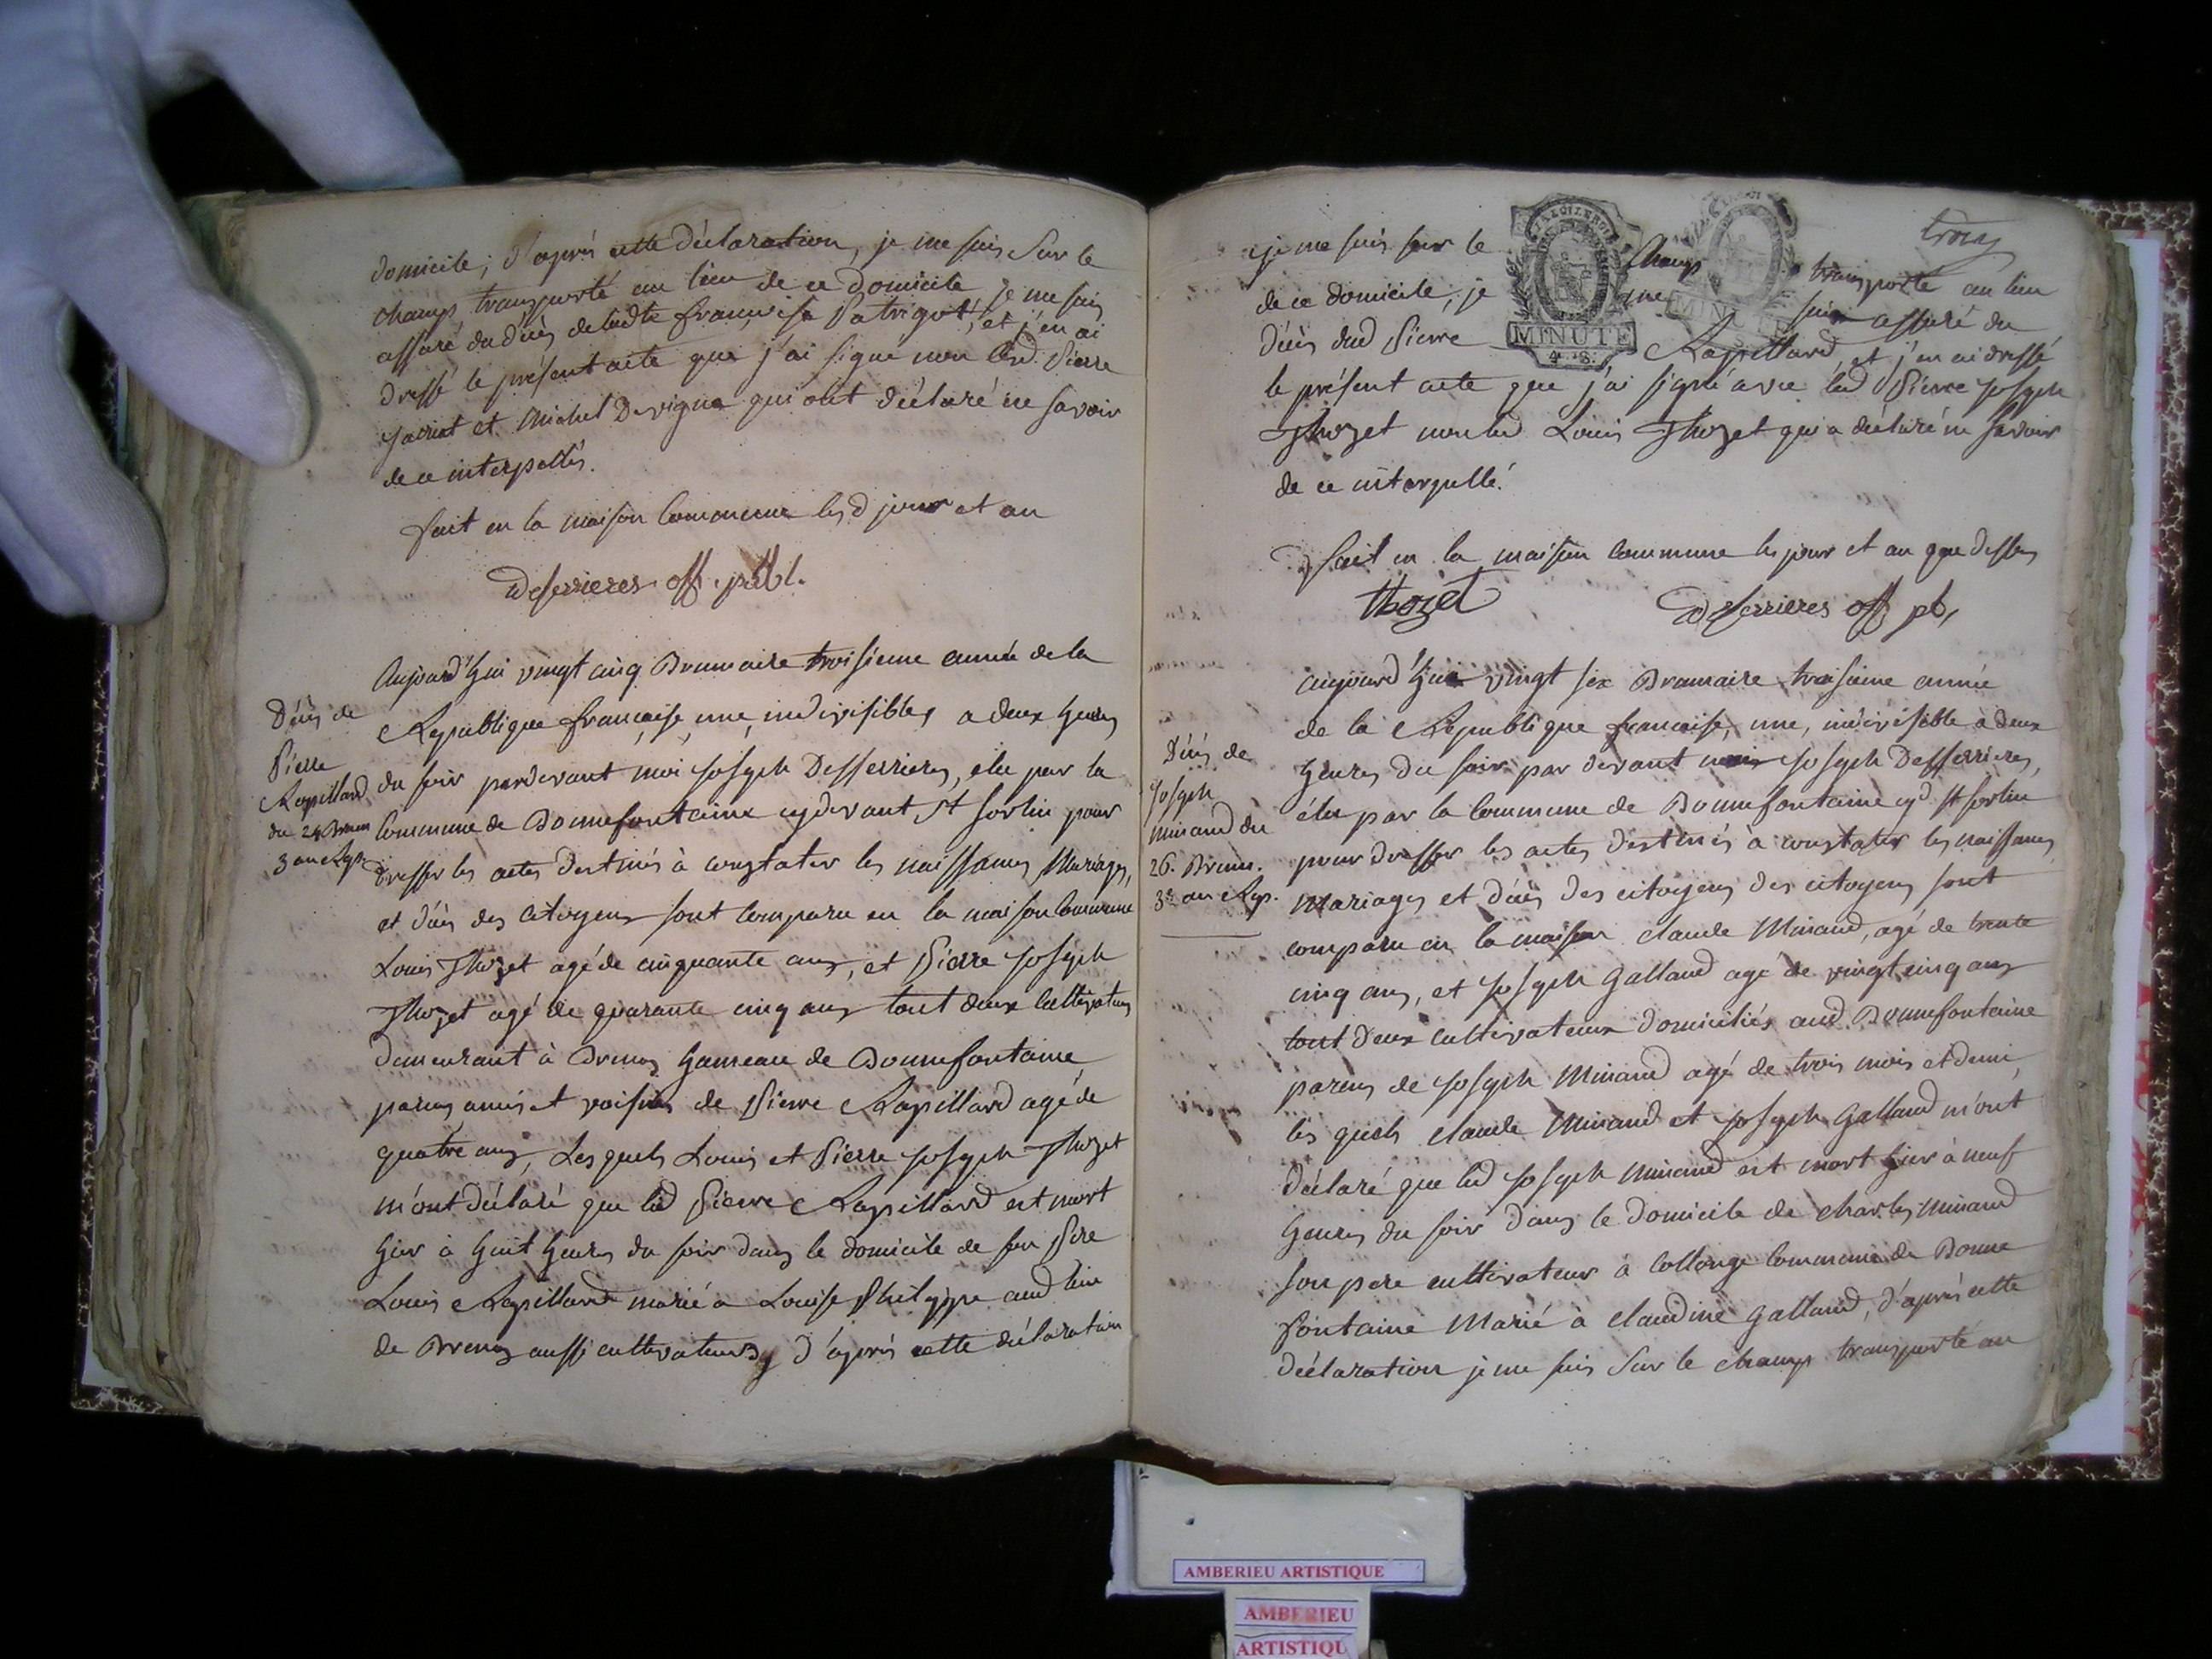 domicile; d'après cette déclaration, je me suis sur le
champ transporté au lieu de ce domicile je me suis
assuré du décès de ladte francoise Patrigot, et j'en ai
dressé le présent acte que j'ai signé non lesd. Pierre
et Michel Devigne qui ont déclaré ne savoir
de ce interpellés.
fait en la maison Commune lesd jour et an
Desserrieres off. publ.
Décès de
Pierre
Rapillard
du 24 Brum
3 an Rep.
Aujourd'hui vingt cinq Brumaire troisieme année de la
Republique francaise, une, indivisible, a deux heures
du soir pardevant moi joseph Desserrieres, élu par la
Commune de Bonnefontaine cydevant St sorlin pour
dresser les actes destinés à constater les naissances Mariages,
et décès des citoyens sont comparu en la maison Commune
Louis Thozet agé de cinquante ans, et Pierre joseph
Thozet agé de quarante cinq ans tout deux cultivateurs
demeurant à Brenaz hameau de Bonnefontaine,
parens amis et voisins de Pierre Rapillard agé de
quatre ans, Lesquels Louis et Pierre joseph Thozet
m'ont déclaré que led Pierre Rapillard est mort
hier à huit heures du soir dans le domicile de son Pere
Louis Rapillard marié a Louise Philippe aud lieu
de Brenaz aussi cultivateurs, d'après cette déclaration
trois
je me suis sur le champ transporté au lieu
de ce domicile, je me suis assuré du
décès dud Pierre Rapillard, et j'en ai dressé
MINUTE
MINUTE
4. S.
le présent acte que j'ai signé avec led Pierre joseph
Thozet non led Louis Thozet qui a déclaré ne savoir
de ce interpellé.
fait en la maison Commune les jour et an que dessus
thozet Desserrieres off pb,
Décès de
joseph
minand du
26. Brum.
3e an Rep.
aujourd'hui vingt six Brumaire troisieme année
de la Republique francaise, une, indivisible a deux
heures du soir par devant moi joseph Desserrieres,
élu par la Commune de Bonnefontaine cyd St sorlin
pour dresser les actes destinés à constater les naissances
mariages et décès des citoyens des citoyens sont
comparu en la maison claude Minand, agé de trente
cinq ans, et joseph Galland agé de vingt cinq ans
tout deux cultivateurs domiciliés aud. Bonnefontaine
parens de joseph Minand agé de trois mois et demi,
les quels claude Minand et joseph Galland m'ont
déclaré que led joseph minand est mort hier à neuf
heures du soir dans le domicile de charles minand
son pere cultivateur à Collonge Commune de Bonne
fontaine Marié à claudine Galland, d'après cette
déclaration je me suis sur le champ transporté au
AMBERIEU ARTISTIQUE
AMBERIEU
ARTISTIQU